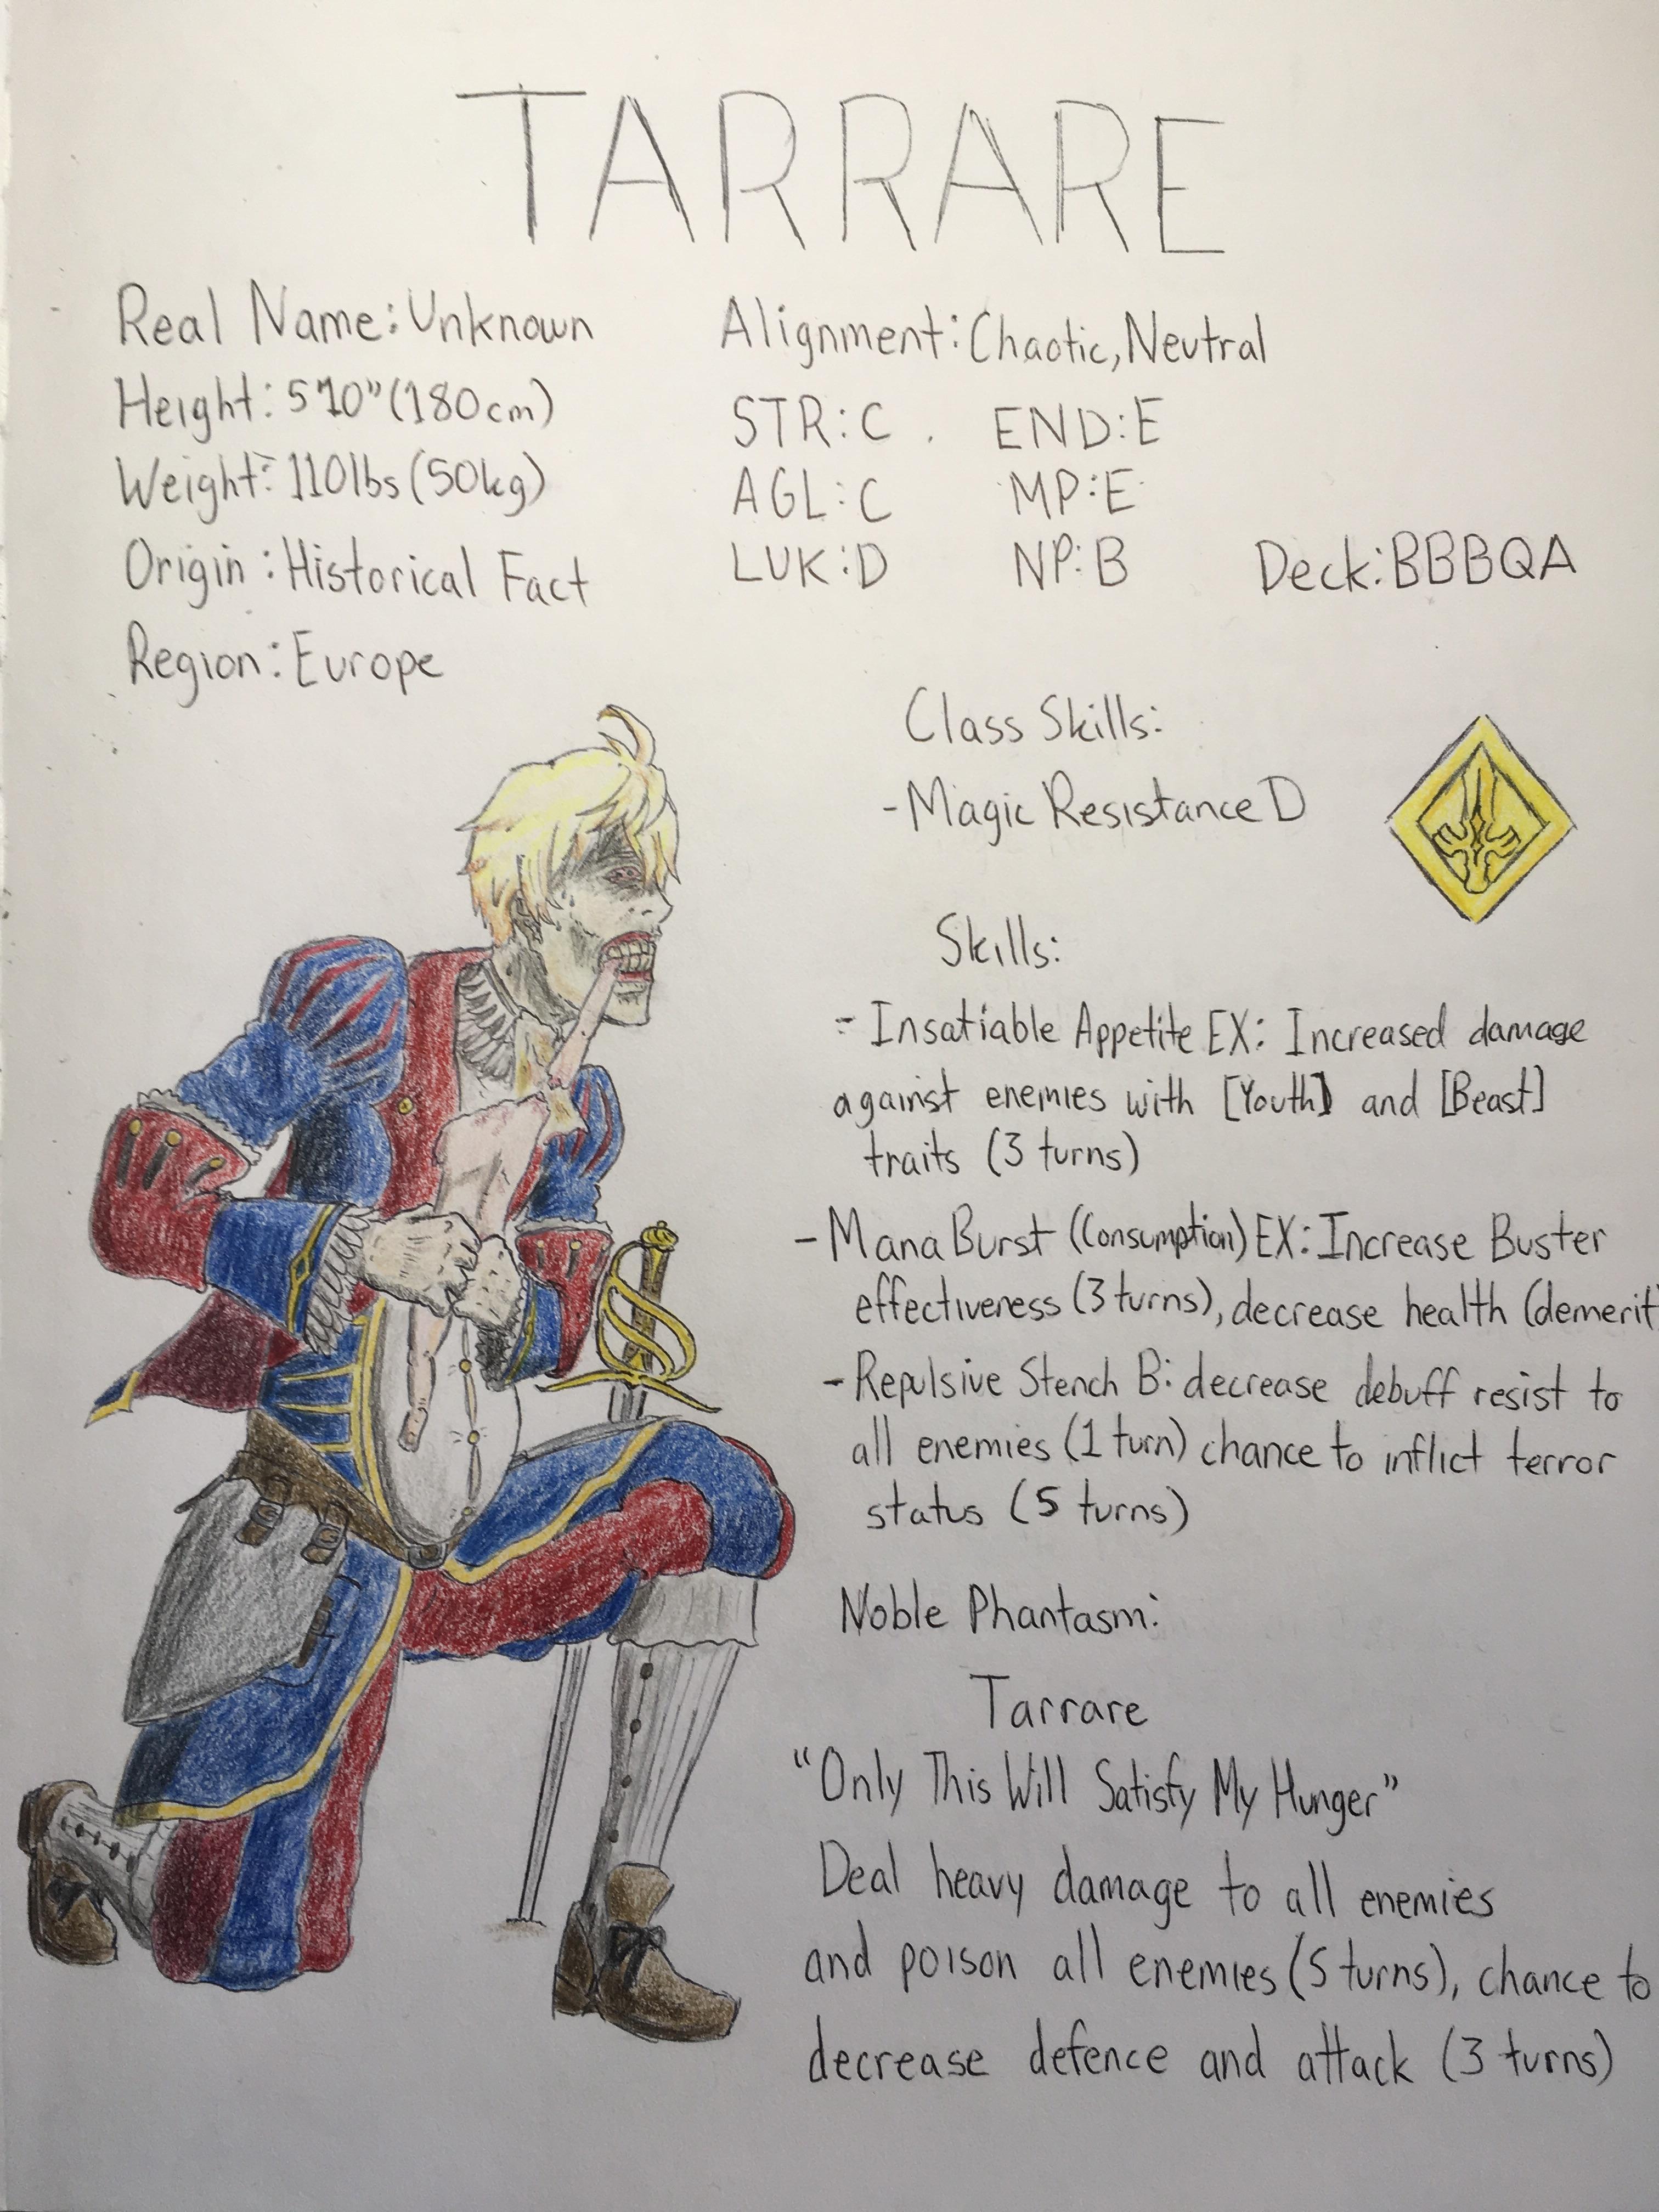 TARRARE
Real Name: Unknown
Height: 5'10" (180cm)
Weight: 110lbs (50kg)
Origin: Historical Fact
Region: Europe
Alignment: Chaotic, Neutral
STR: C . END: E
AGL: C MP: E
LUK: D NP: B Deck: BBBQA
Class Skills:
- Magic Resistance D
Skills:
- Insatiable Appetite EX: Increased damage
against enemies with [Youth] and [Beast]
traits (3 turns)
- Mana Burst (Consumption) EX: Increase Buster
effectiveness (3 turns), decrease health (demerit)
- Repulsive Stench B: decrease debuff resist to
all enemies (1 turn) chance to inflict terror
status (5 turns)
Noble Phantasm:
Tarrare
"Only This Will Satisfy My Hunger"
Deal heavy damage to all enemies
and poison all enemies (5 turns), chance to
decrease defence and attack (3 turns)